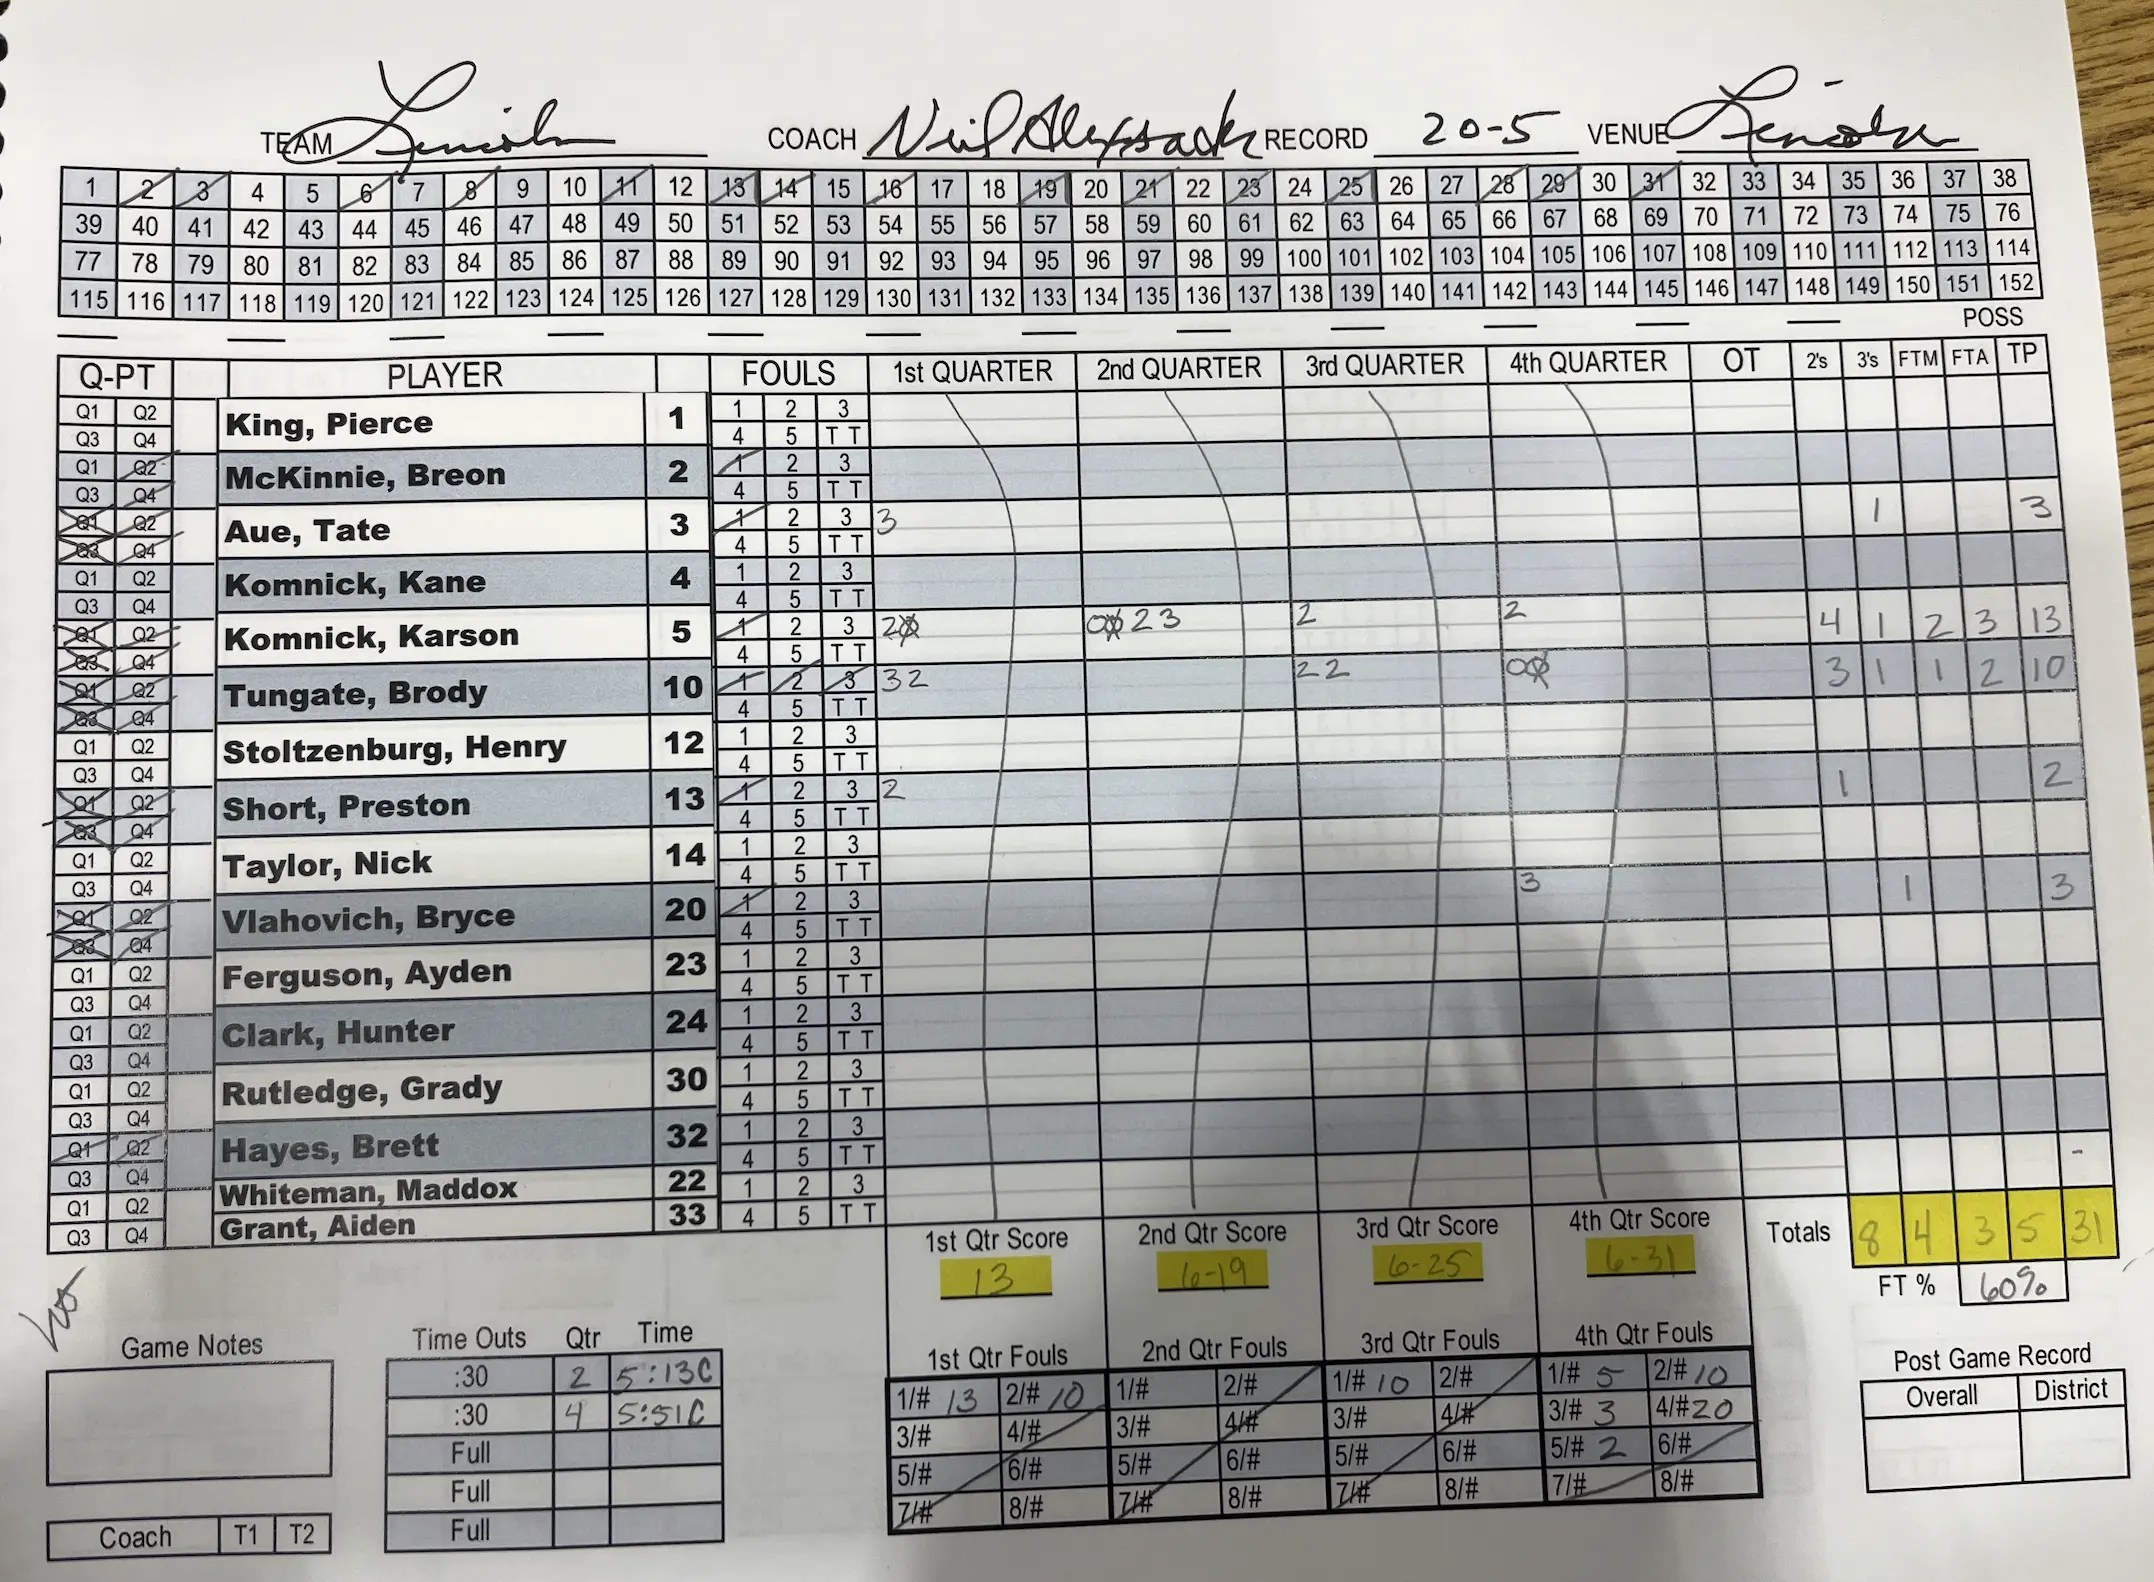 TEAM Lincoln COACH Neil RECORD 20-5 VENUE Lincoln
1 2 3 4 5 6 7 8 9 10 11 12 13 14 15 16 17 18 19 20 21 22 23 24 25 26 27 28 29 30 31 32 33 34 35 36 37 38
39 40 41 42 43 44 45 46 47 48 49 50 51 52 53 54 55 56 57 58 59 60 61 62 63 64 65 66 67 68 69 70 71 72 73 74 75 76
77 78 79 80 81 82 83 84 85 86 87 88 89 90 91 92 93 94 95 96 97 98 99 100 101 102 103 104 105 106 107 108 109 110 111 112 113 114
115 116 117 118 119 120 121 122 123 124 125 126 127 128 129 130 131 132 133 134 135 136 137 138 139 140 141 142 143 144 145 146 147 148 149 150 151 152
POSS
Q-PT PLAYER FOULS 1st QUARTER 2nd QUARTER 3rd QUARTER 4th QUARTER OT 2's 3's FTM FTA TP
Q1 Q2 King, Pierce 1 1 2 3
Q3 Q4 4 5 T T
Q1 Q2 McKinnie, Breon 2 1 2 3
Q3 Q4 4 5 T T
Q1 Q2 Aue, Tate 3 1 2 3 3 1 3
Q3 Q4 4 5 T T
Q1 Q2 Komnick, Kane 4 1 2 3
Q3 Q4 4 5 T T
Q1 Q2 Komnick, Karson 5 1 2 3 2 0 0 0 2 3 2 2 4 1 2 3 13
Q3 Q4 4 5 T T
Q1 Q2 Tungate, Brody 10 1 2 3 3 2 2 2 0 0 3 1 1 2 10
Q3 Q4 4 5 T T
Q1 Q2 Stoltzenburg, Henry 12 1 2 3
Q3 Q4 4 5 T T
Q1 Q2 Short, Preston 13 1 2 3 2 1 2
Q3 Q4 4 5 T T
Q1 Q2 Taylor, Nick 14 1 2 3
Q3 Q4 4 5 T T
Q1 Q2 Vlahovich, Bryce 20 1 2 3 3 1 3
Q3 Q4 4 5 T T
Q1 Q2 Ferguson, Ayden 23 1 2 3
Q3 Q4 4 5 T T
Q1 Q2 Clark, Hunter 24 1 2 3
Q3 Q4 4 5 T T
Q1 Q2 Rutledge, Grady 30 1 2 3
Q3 Q4 4 5 T T
Q1 Q2 Hayes, Brett 32 1 2 3
Q3 Q4 4 5 T T
Q1 Q2 Whiteman, Maddox 22 1 2 3
Q3 Q4 Grant, Aiden 33 4 5 T T
1st Qtr Score 2nd Qtr Score 3rd Qtr Score 4th Qtr Score Totals 8 4 3 5 31
13 6-19 6-25 6-31 FT % 60%
Game Notes
Time Outs Qtr Time
:30 2 5:13C
:30 4 5:51C
Full
Full
Full
Coach T1 T2
1st Qtr Fouls 2nd Qtr Fouls 3rd Qtr Fouls 4th Qtr Fouls
1/# 13 2/# 10 1/# 2/# 1/# 10 2/# 1/# 5 2/# 10
3/# 4/# 3/# 4/# 3/# 4/# 3/# 3 4/# 20
5/# 6/# 5/# 6/# 5/# 6/# 5/# 2 6/#
7/# 8/# 7/# 8/# 7/# 8/# 7/# 8/#
Post Game Record
Overall District